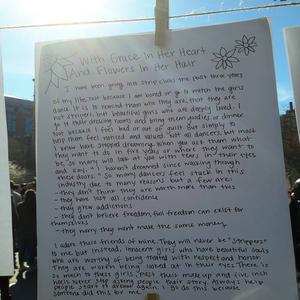 With Grace In Her Heart
And Flowers In Her Hair
I have been going into strip clubs the past three years
of my life, not because I am bored or go to watch the girls
dance. It is to remind them who they are, that they are
not strippers, but beautiful girls who are deeply loved. I
go to their dressing rooms and bring them goodies or dinner
not because I feel bad or out of guilt but simply to
help them feel noticed and valued. Not all dancers, but most
I know have stopped dreaming. When you ask them what
they want to do in five years or where they want to
be, so many will look at you with tears in their eyes
and say, "I haven't dreamed since walking through
these doors." So many dancers feel stuck in this
industry due to many reasons but a few are:
- they don't think they are worth more than this
- they have lost all confidence
- they grew addictions
- they don't believe freedom, full freedom can exist for
themselves
- they worry they wont make the same money
I adore these friends of mine. They will never be "strippers"
to me but instead, innocent girls who have beautiful souls
who are worthy of being treated with respect and honor.
They are worth being looked at in their eyes. There is
so much to these girls, past each makeup and five inch
heels. Never stop asking their story. Always help
people start to dream again. I do this because
someone did this for me.